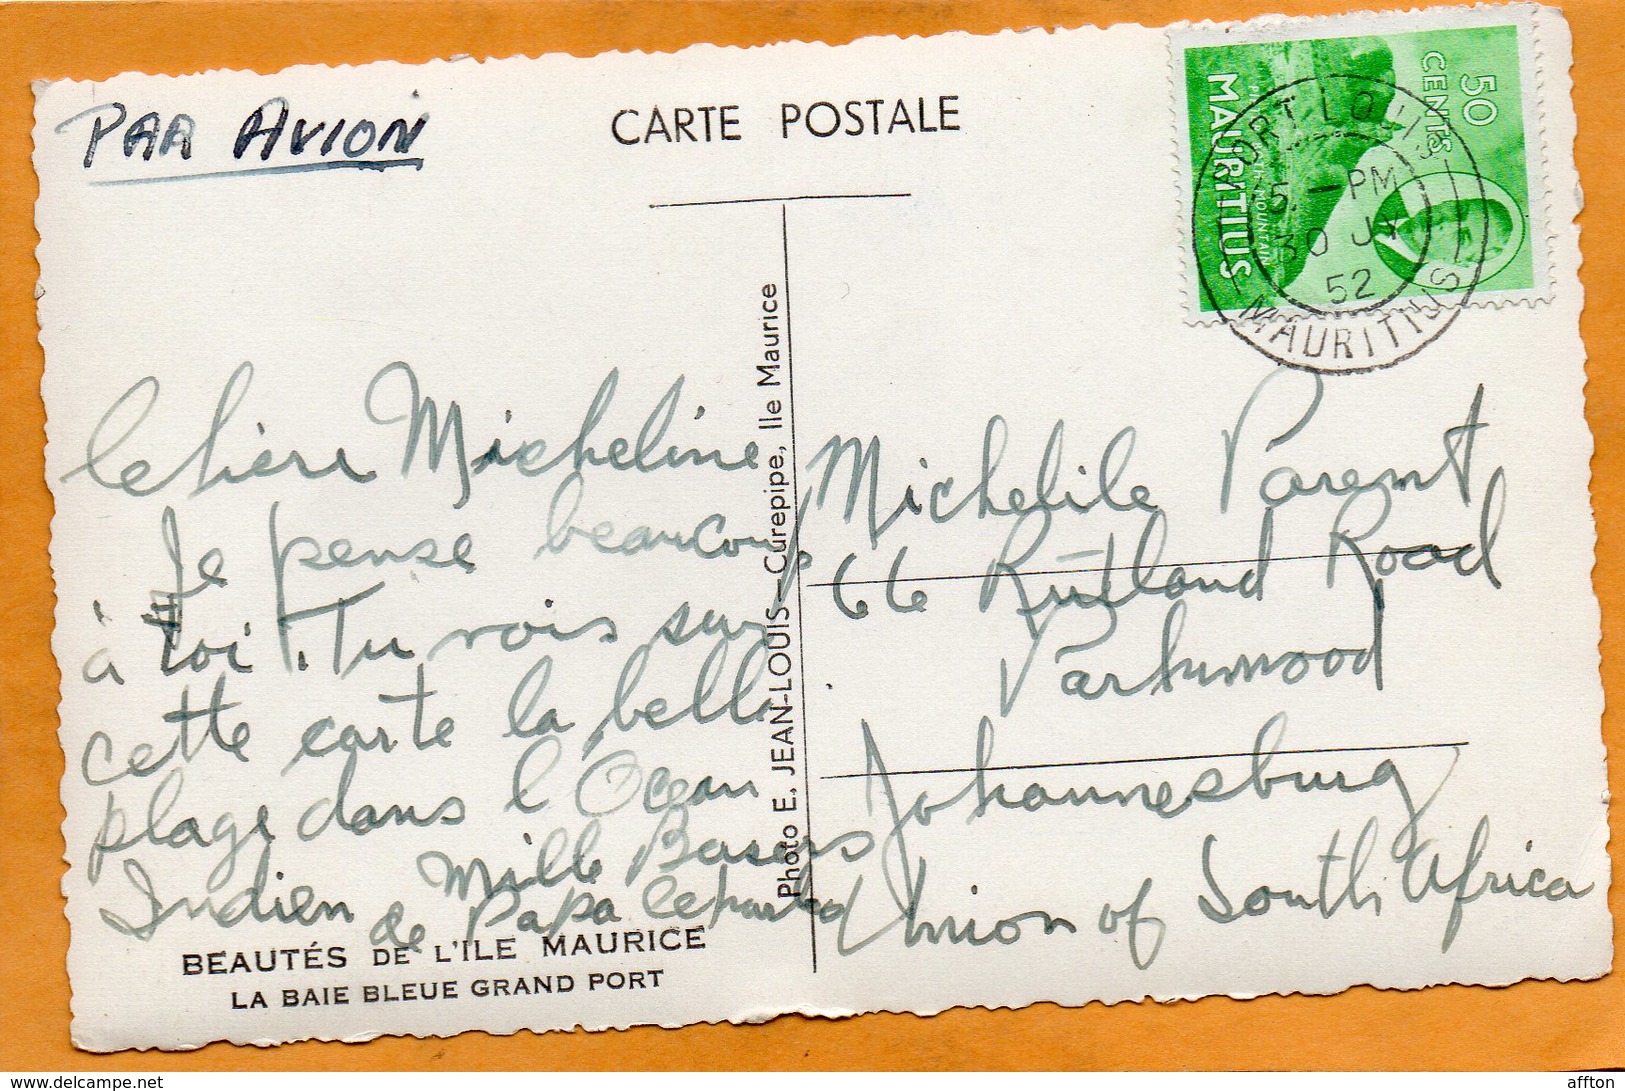 PAR AVION
CARTE POSTALE
50
CENTS
MAURITIUS
PORT LOUIS
5 - PM
30 JY
52
- MAURITIUS -
Chère Micheline
Je pense beaucoup
à toi. Tu vois sur
cette carte la belle
plage dans l'Ocean
Indien Mille Baisers
de Papa
Michelile Parent
66 Rutland Road
Parkwood
Johannesburg
Union of South Africa
Photo E. JEAN-LOUIS-Curepipe, Ile Maurice
BEAUTÉS DE L'ILE MAURICE
LA BAIE BLEUE GRAND PORT
delcampe.net
affton